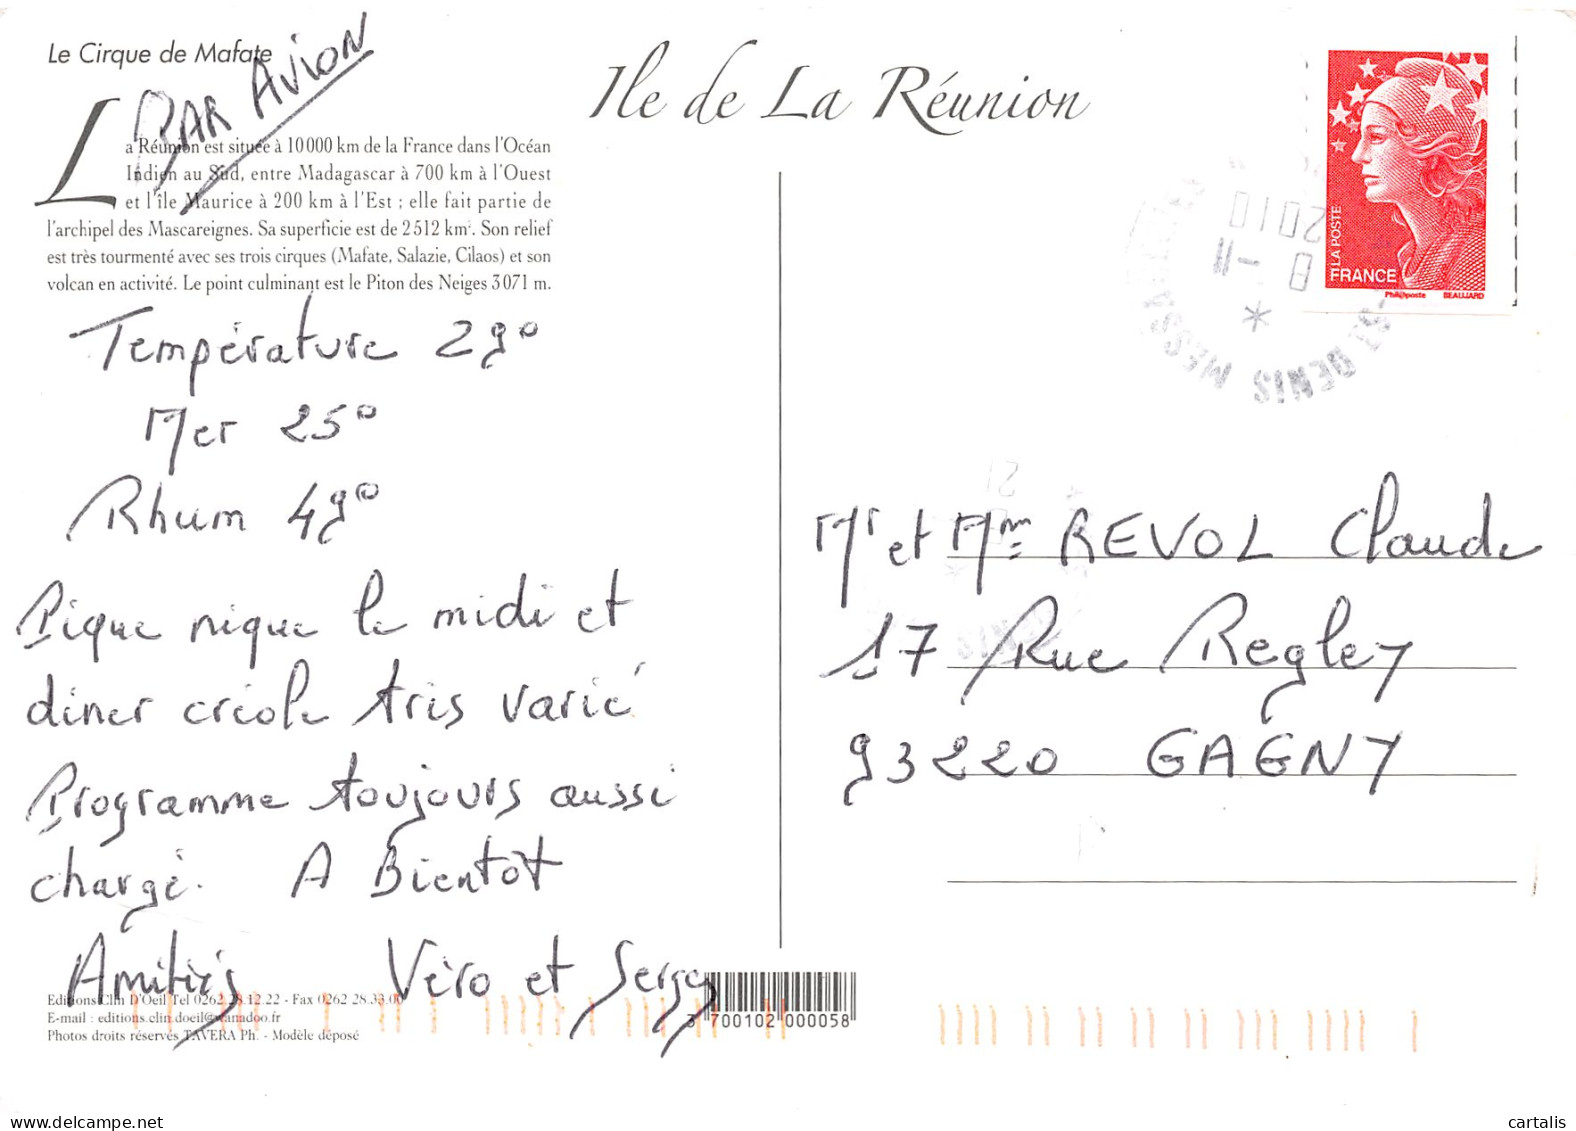 Le Cirque de Mafate
PAR AVION
Ile de La Réunion
La Réunion est située à 10 000 km de la France dans l'Océan
Indien au Sud, entre Madagascar à 700 km à l'Ouest
et l'île Maurice à 200 km à l'Est ; elle fait partie de
l'archipel des Mascareignes. Sa superficie est de 2 512 km². Son relief
est très tourmenté avec ses trois cirques (Mafate, Salazie, Cilaos) et son
volcan en activité. Le point culminant est le Piton des Neiges 3 071 m.
Température 29°
Mer 25°
Rhum 49°
Pique nique le midi et
diner créole tris varié
Programme toujours aussi
chargé. A Bientôt
Amitiés Véro et Serge
Editions Clin D'Oeil Tel 0262 28.12.22 - Fax 0262 28.33.00
E-mail : editions.clin.doeil@wanadoo.fr
Photos droits réservés TAVERA Ph. - Modèle déposé
3 700102 000058
LA POSTE
FRANCE
Phil@poste BEAUJARD
8 -11
2010
ST DENIS MES
Mr et Mme REVOL Claude
17 Rue Regley
93220 GAGNY
cartalis